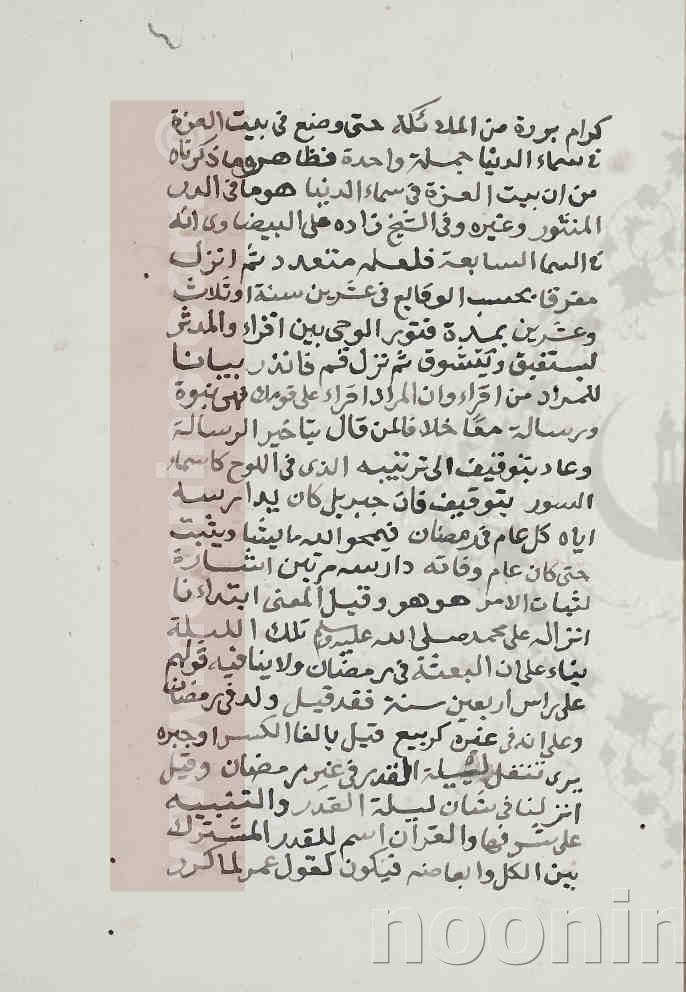 كرام بررة من الملائكة حتى وضع فى بيت العزة
فى سماء الدنيا جملة واحدة فظاهر وما ذكرناه
من ان بيت العزة فى سماء الدنيا هو ما فى الدر
المنثور وغيره وفى الشيخ زاده على البيضاوى انه
فى السما السابعة فلعله متعدد ثم انزل
مفرقا بحسب الوقايع فى عشرين سنة او ثلاث
وعشرين بمدة فتور الوحى بين اقراء والمدثر
ليستفيق ويتشوق ثم نزل قم فانذر بيانا
للمراد من اقراء وان المراد اقراء على قومك فهى نبوة
ورسالة معا خلافا لمن قال بتاخير الرسالة
وعاد بتوقيف الى ترتيبه الذى فى اللوح كاسماء
السور بتوقيف فان جبريل كان يدارسه
اياه كل عام فى رمضان فيمحو الله ما يشا ويثبت
حتى كان عام وفاته دارسه مرتين اشارة
لثبات الامر هو هو وقيل المعنى ابتدانا
انزاله على محمد صلى الله عليه وسلم تلك الليلة
بناء على ان البعثة فى رمضان ولا ينافيه قولهم
على راس اربعين سنة فقد قيل ولد فى رمضان
وعلى انه فى كربيع قيل بالغا الكسر او جبره
يرى تنتقل ليلة القدر فى غير رمضان وقيل
انزلنا فى شان ليلة القدر والتنبيه
على شرفها والقرآن اسم للقدر المشترك
بين الكل وابعاضه فيكون كقول عمر لما كرر
noonin